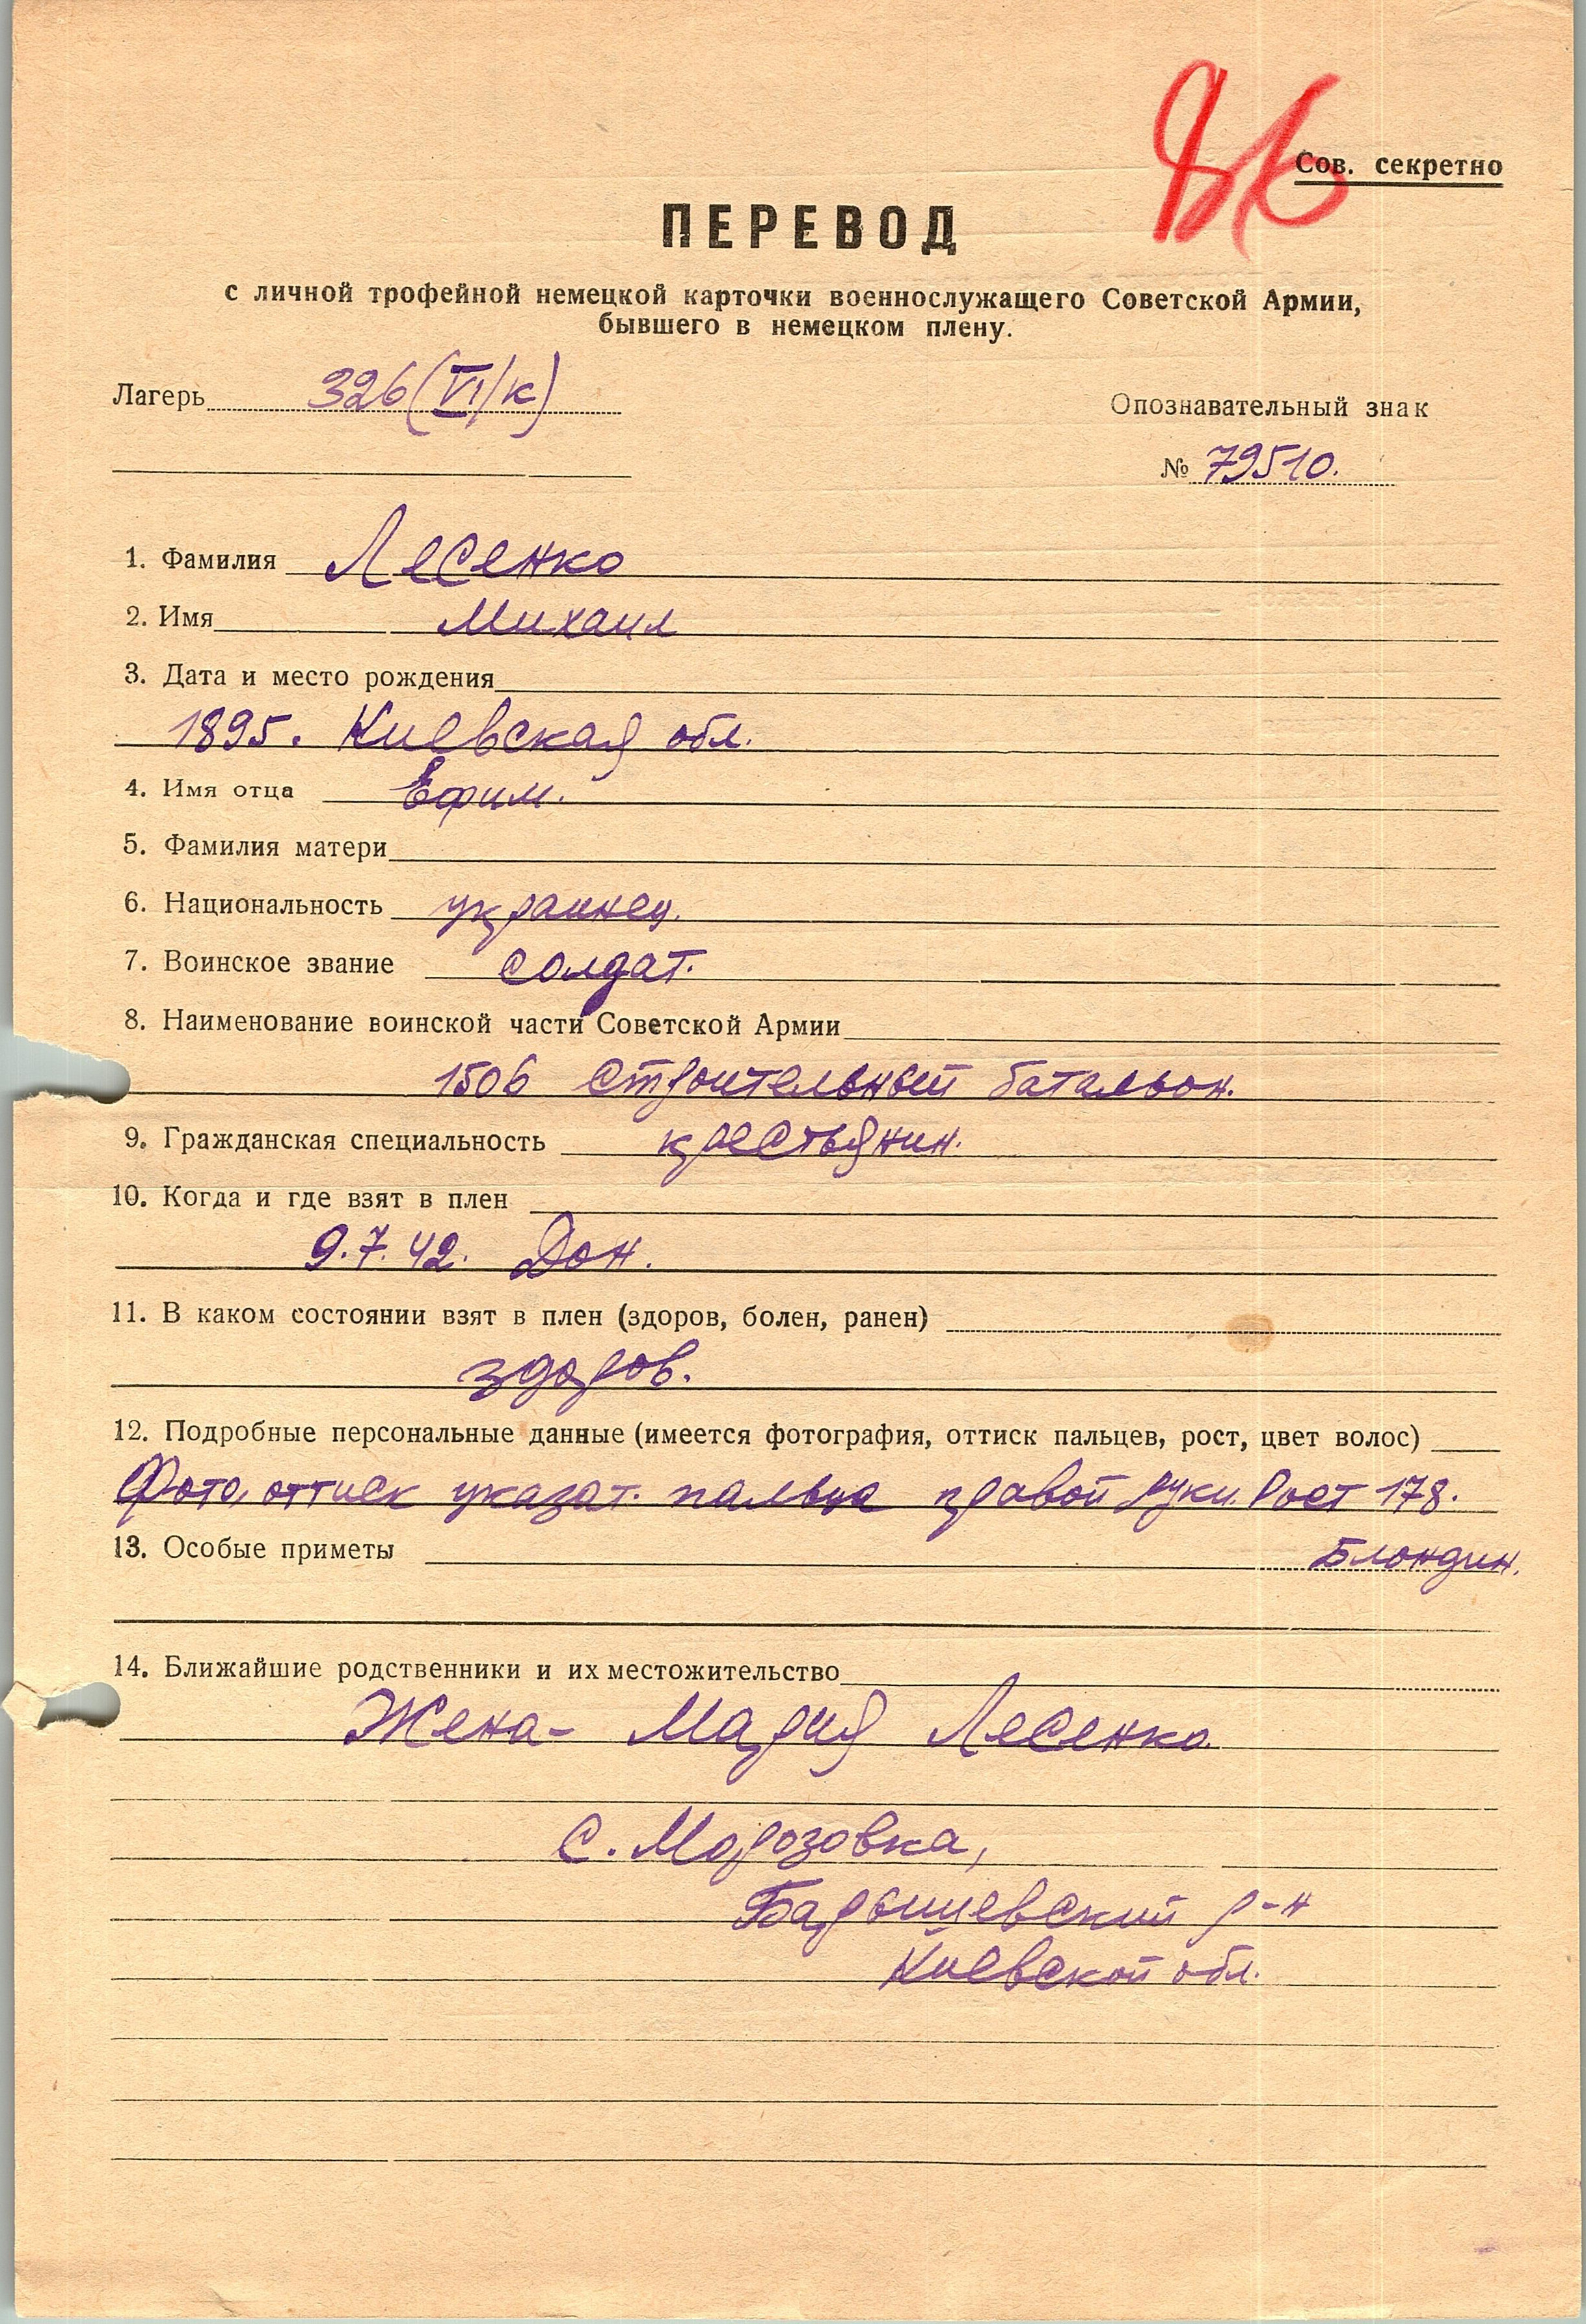 86
Сов. секретно
ПЕРЕВОД
с личной трофейной немецкой карточки военнослужащего Советской Армии,
бывшего в немецком плену.
Лагерь 326 (VI/к)
Опознавательный знак
№ 79510.
1. Фамилия Лесенко
2. Имя Михаил
3. Дата и место рождения
1895. Киевская обл.
4. Имя отца Ефим.
5. Фамилия матери
6. Национальность украинец.
7. Воинское звание солдат.
8. Наименование воинской части Советской Армии
1506 строительный батальон.
9. Гражданская специальность крестьянин.
10. Когда и где взят в плен
9.7.42. Дон.
11. В каком состоянии взят в плен (здоров, болен, ранен)
здоров.
12. Подробные персональные данные (имеется фотография, оттиск пальцев, рост, цвет волос)
Фото, оттиск указат. пальца правой руки. Рост 178.
13. Особые приметы Блондин.
14. Ближайшие родственники и их местожительство
Жена - Мария Лесенко.
С. Морозовка,
Барышевский р-н
Киевской обл.